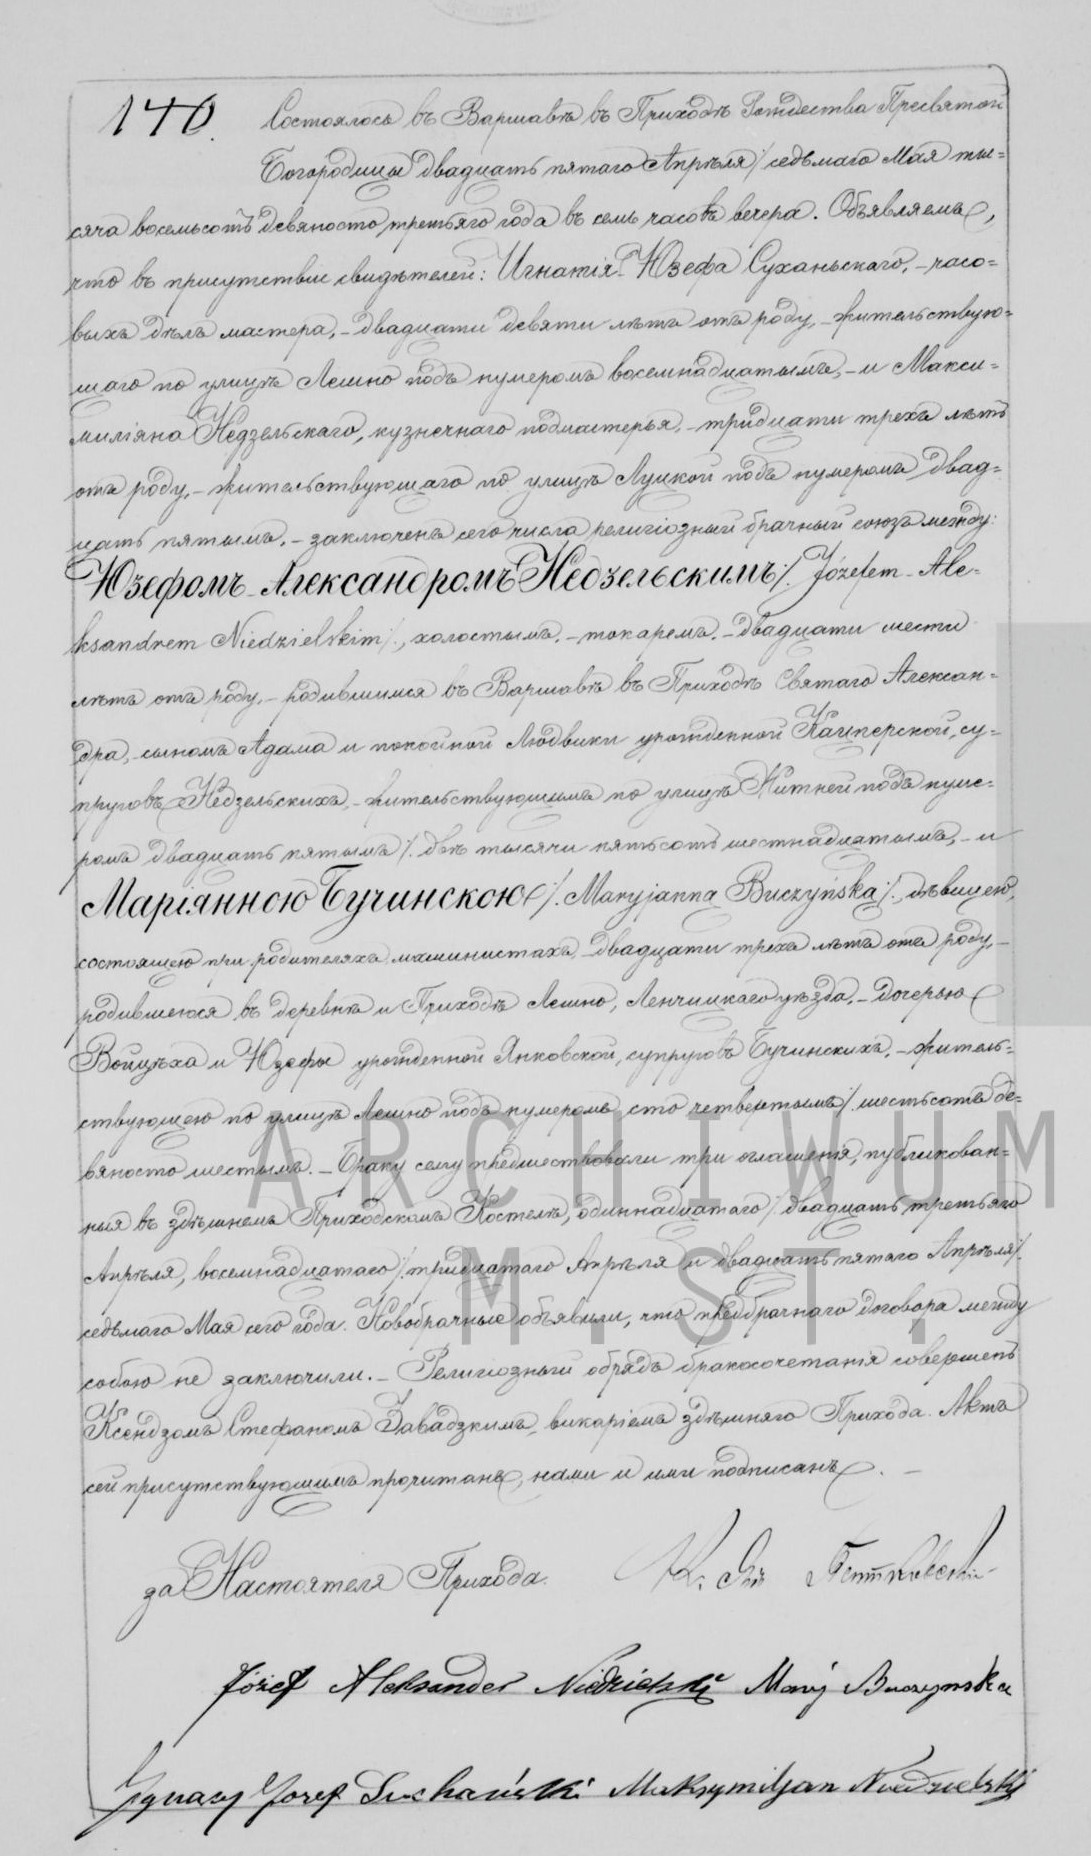 140. Состоялось въ Варшавѣ въ Приходѣ Рождества Пресвятой
Богородицы двадцать пятаго Апрѣля /. седьмаго Мая ты=
сяча восемьсотъ девяносто третьяго года въ семь часовъ вечера. Объявляемъ,
что въ присутствіи свидѣтелей: Игнатія-Юзефа Суханьскаго, – часо=
выхъ дѣлъ мастера, – двадцати девяти лѣтъ отъ роду, – жительствую=
щаго по улицѣ Лешно подъ нумеромъ восемнадцатымъ, – и Макси=
миліяна Недзельскаго, кузнечнаго подмастерья, – тридцати трехъ лѣтъ
отъ роду, – жительствующаго по улицѣ Луцкой подъ нумеромъ двад=
цать пятымъ, – заключенъ сего числа религіозный брачный союзъ между:
Юзефомъ-Александромъ Недзельскимъ /. Józefem-Ale-
ksandrem Niedzielskim /., холостымъ, – токаремъ, – двадцати шести
лѣтъ отъ роду, – родившимся въ Варшавѣ въ Приходѣ Святаго Алексан=
дра, – сыномъ Адама и покойной Людвики урожденной Кацперской, су=
пруговъ Недзельскихъ, – жительствующимъ по улицѣ Житней подъ нуме=
ромъ двадцать пятымъ /. двѣ тысячи пятьсотъ шестнадцатымъ, – и
Маріянною Бучинскою /. Maryjanną Buczyńską /., дѣвицею,
состоящею при родителяхъ машинистахъ, – двадцати трехъ лѣтъ отъ роду, –
родившеюся въ деревнѣ и Приходѣ Лешно, Ленчицкаго уѣзда, – дочерью
Войцѣха и Юзефы урожденной Янковской, супруговъ Бучинскихъ, – житель=
ствующею по улицѣ Лешно подъ нумеромъ сто четвертымъ /. шестьсотъ де=
вяносто шестымъ. – Браку сему предшествовали три оглашенія, публикован=
ныя въ здѣшнемъ Приходскомъ Костелѣ, одиннадцатаго /. двадцать третьяго
Апрѣля, восемнадцатаго /. тридцатаго Апрѣля и двадцать пятаго Апрѣля /.
седьмаго Мая сего года. Новобрачные объявили, что предбрачнаго договора между
собою не заключили. – Религіозный обрядъ бракосочетанія совершенъ
Ксендзомъ Стефаномъ Завадзкимъ, викаріемъ здѣшняго Прихода. Актъ
сей присутствующимъ прочитанъ, нами и ими подписанъ. –
за Настоятеля Прихода. К.
Józef Aleksander Niedzielski Marij Buczynska
Ignacy Jozef Suchański Maksymilyan Niedzielski
ARCHIWUM
M. ST.